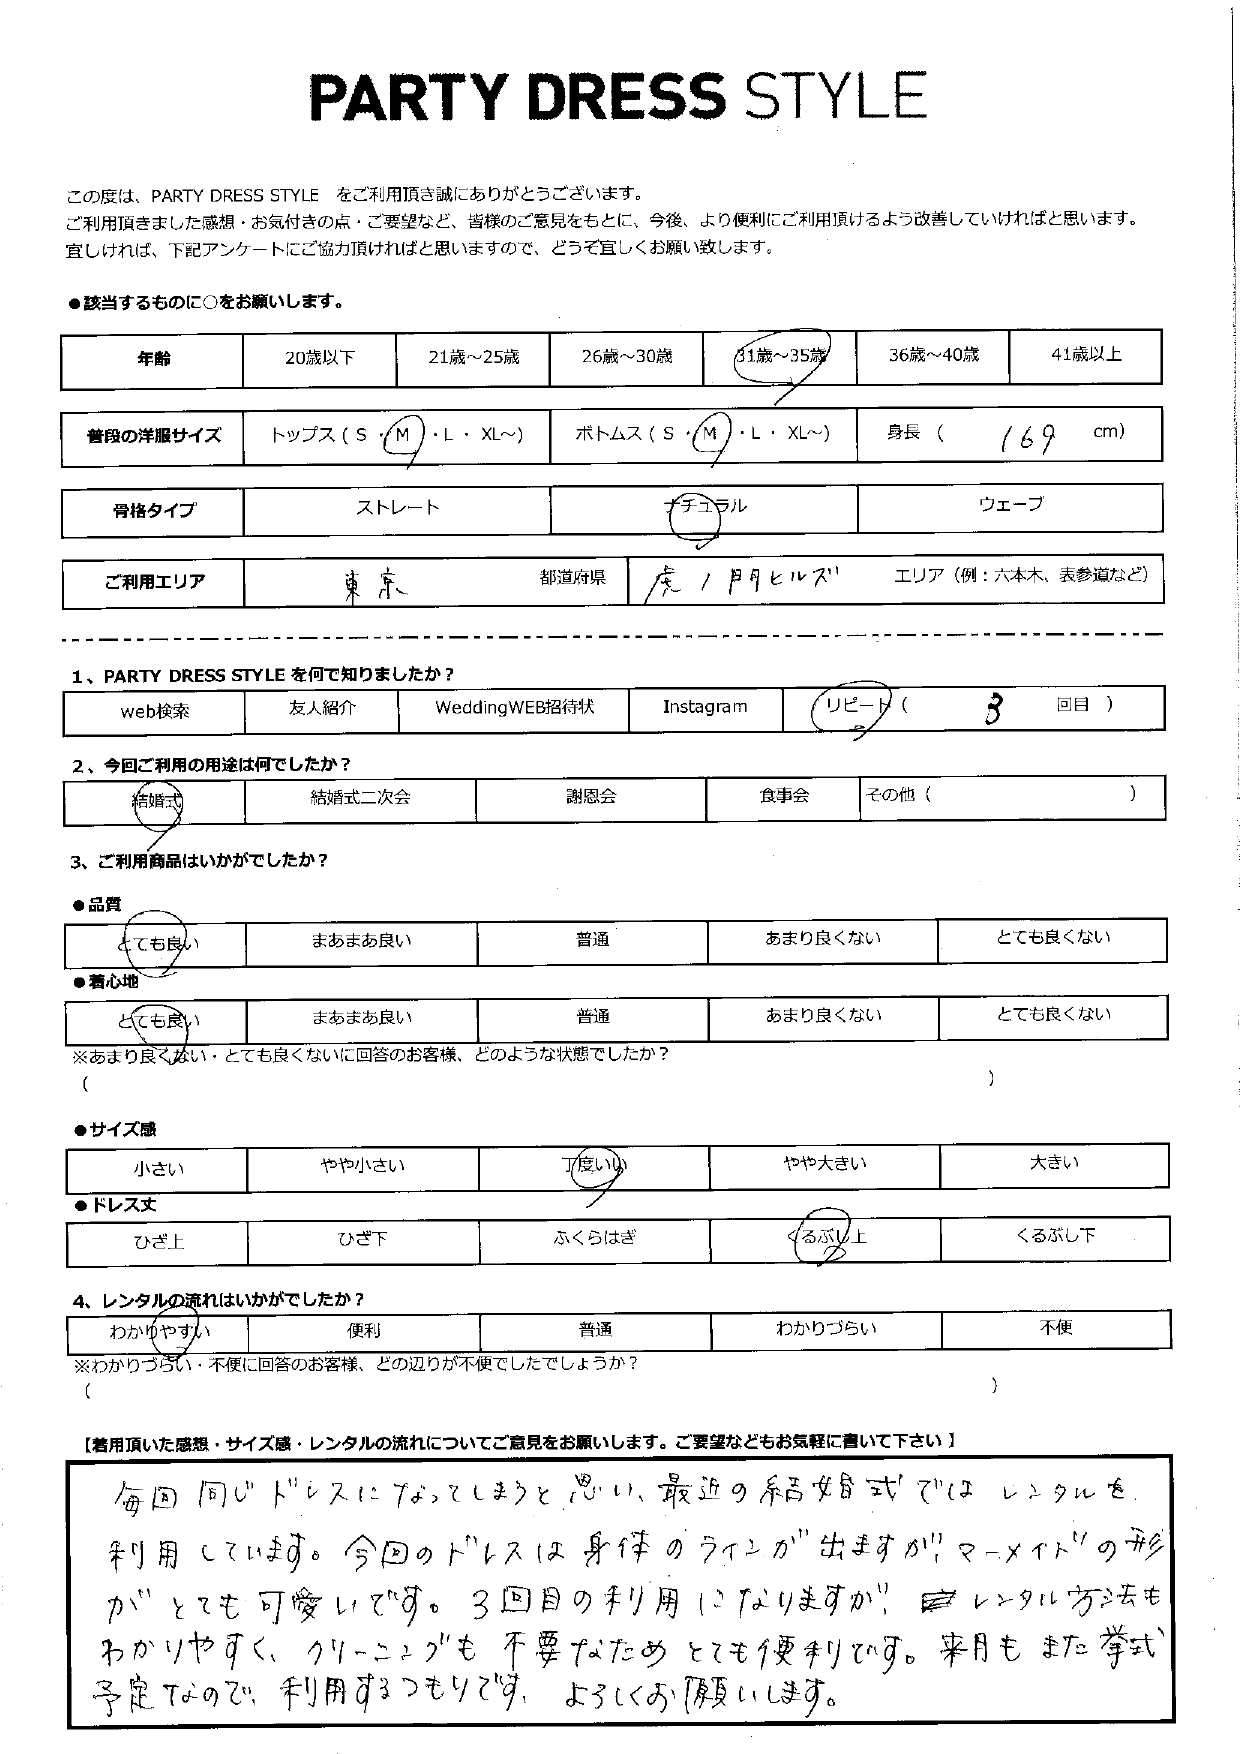 PARTY DRESS STYLE
この度は、PARTY DRESS STYLE をご利用頂き誠にありがとうございます。
ご利用頂きました感想・お気付きの点・ご要望など、皆様のご意見をもとに、今後、より便利にご利用頂けるよう改善していければと思います。
宜しければ、下記アンケートにご協力頂ければと思いますので、どうぞ宜しくお願い致します。
●該当するものに○をお願いします。
年齢 20歳以下 21歳～25歳 26歳～30歳 31歳～35歳 36歳～40歳 41歳以上
普段の洋服サイズ トップス ( S ・ M ・ L ・ XL～) ボトムス ( S ・ M ・ L ・ XL～) 身長 ( 169 cm)
骨格タイプ ストレート ナチュラル ウェーブ
ご利用エリア 東京 都道府県 虎ノ門ヒルズ エリア（例：六本木、表参道など）
1、PARTY DRESS STYLE を何で知りましたか？
web検索 友人紹介 WeddingWEB招待状 Instagram リピート ( 3 回目 )
2、今回ご利用の用途は何でしたか？
結婚式 結婚式二次会 謝恩会 食事会 その他 ( )
3、ご利用商品はいかがでしたか？
●品質
とても良い まあまあ良い 普通 あまり良くない とても良くない
●着心地
とても良い まあまあ良い 普通 あまり良くない とても良くない
※あまり良くない・とても良くないに回答のお客様、どのような状態でしたか？
( )
●サイズ感
小さい やや小さい 丁度いい やや大きい 大きい
●ドレス丈
ひざ上 ひざ下 ふくらはぎ くるぶし上 くるぶし下
4、レンタルの流れはいかがでしたか？
わかりやすい 便利 普通 わかりづらい 不便
※わかりづらい・不便に回答のお客様、どの辺りが不便でしたでしょうか？
( )
【着用頂いた感想・サイズ感・レンタルの流れについてご意見をお願いします。ご要望などもお気軽に書いて下さい】
毎回同じドレスになってしまうと思い、最近の結婚式ではレンタルを
利用しています。今回のドレスは身体のラインが出ますが、マーメイドの形
がとても可愛いです。3回目の利用になりますが、レンタル方法も
わかりやすく、クリーニングも不要なためとても便利です。来月もまた挙式
予定なので、利用するつもりです。よろしくお願いします。